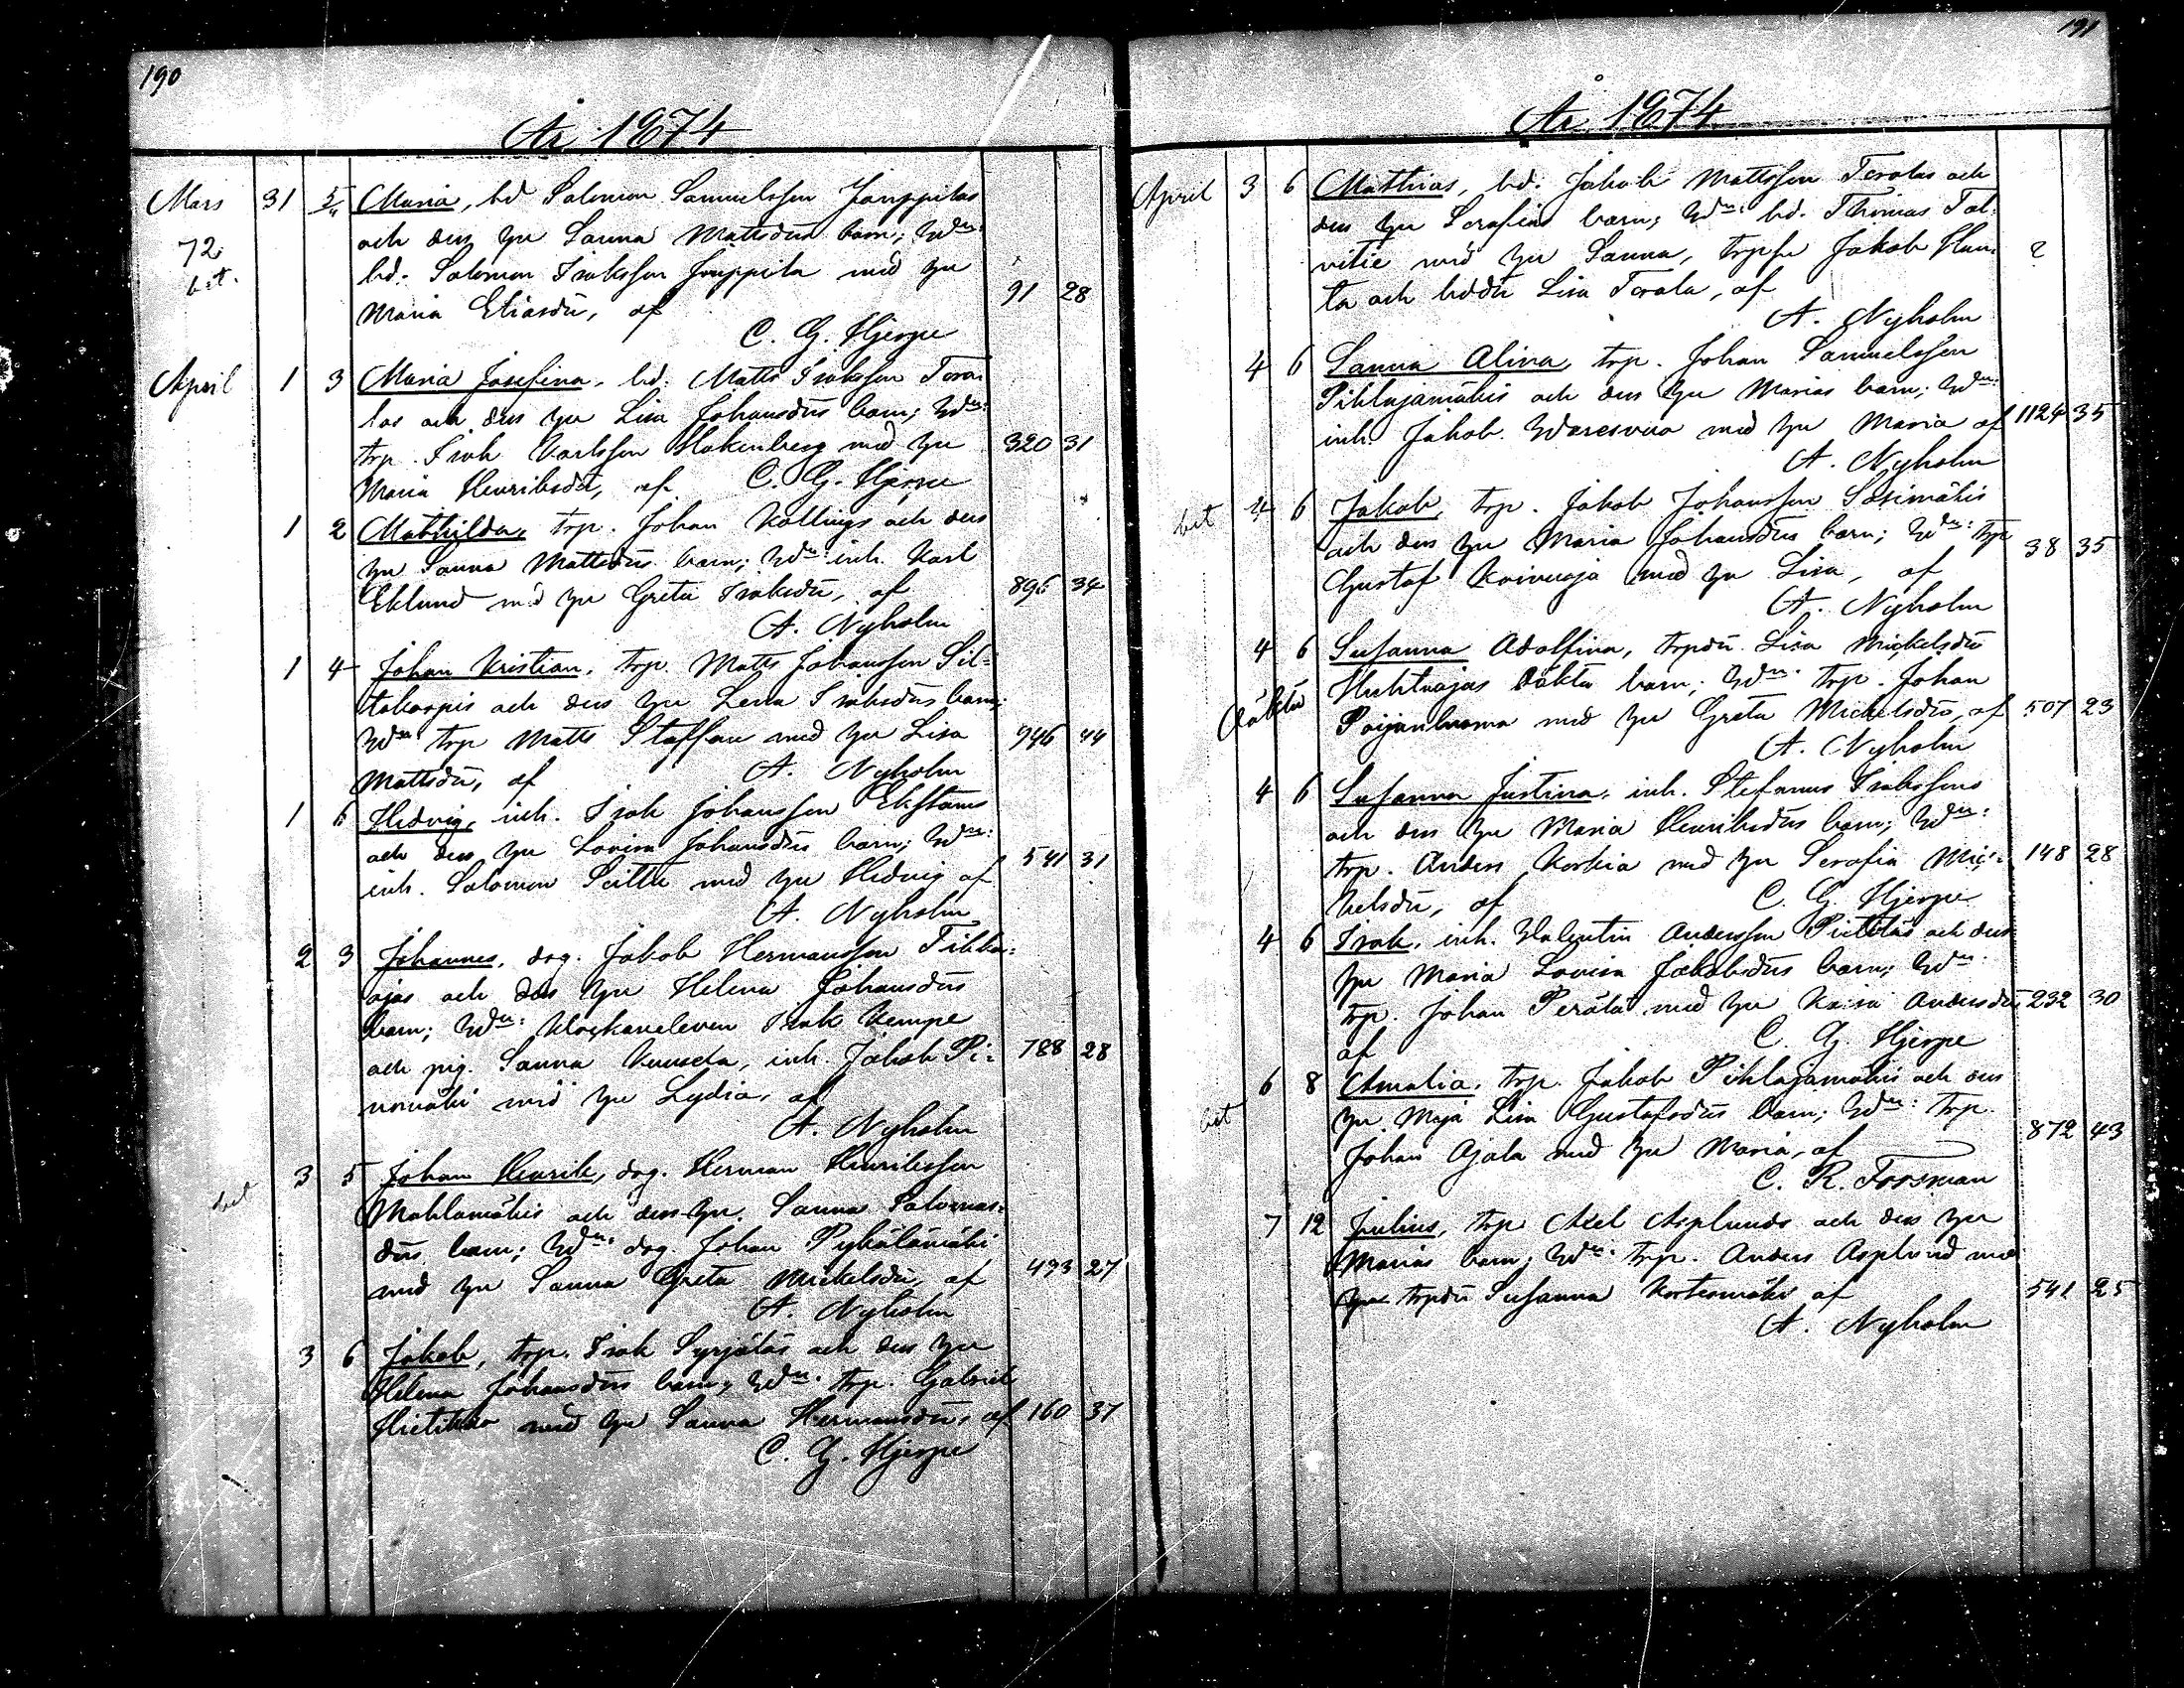 190
År 1874
Mars 31 5/4 Maria, bd Salomon Samuelsson Jouppilas
och dess hu Sanna Mattsdrs barn; Wdn:
72 bd. Salomon Isaksson Jouppila med hu
bet. Maria Eliasdr, af 91 28
C. G. Hjerpe
April 1 3 Maria Josefina, bd. Matts Isaksson Tora-
las och dess hu Lisa Johansdrs barn; Wdn:
trp. Isak Karlsson Hakenberg med hu 320 31
Maria Henriksdr, af C. G. Hjerpe
1 2 Mathilda, trp. Johan Kollings och dess
hu Sanna Mattsdrs barn; Wdn: inh. Karl
Eklund med hu Greta Isaksdr, af 896 34
A. Nyholm
1 4 Johan Kristian, trp. Matts Johansson Sil-
takorpis och dess hu Lena Isaksdrs barn;
Wdn trp Matts Staffan med hu Lisa 946 44
Mattsdr, af A. Nyholm
1 6 Hedvig, inh. Isak Johansson Ekstams
och dess hu Lovisa Johansdrs barn; Wdn:
inh. Salomon Saittu med hu Hedvig af 541 31
A. Nyholm
2 3 Johannes, drg. Jakob Hermansson Tikka-
ojas och dess hu Helena Johansdrs
barn; Wdn: klockareleven Isak Kempe
och pig. Sanna Kuusela, inh. Jakob Pi- 788 28
nomäki med hu Lydia, af
A. Nyholm
3 5 Johan Henrik, drg. Herman Henriksson
bet Mahlamäkis och dess hu Sanna Salomons-
drs barn; Wdn: drg. Johan Pyhälämäki
med hu Sanna Greta Mickelsdr, af 493 27
A. Nyholm
3 6 Jakob, trp. Isak Syrjäläs och dess hu
Helena Johansdrs barn; Wdn: trp. Gabriel
Hietikko med hu Sanna Hermansdr, af 160 37
C. G. Hjerpe
191
År 1874
April 3 6 Mathias, bd. Jakob Mattsson Torolas och
dess hu Serafias barn; Wdn: bd. Thomas Tal-
vitie med hu Sanna, trpsn Jakob Han- 2
ta och bddr Lisa Torala, af
A. Nyholm
4 6 Sanna Alina, trp. Johan Samuelsson
Pihlajamäkis och dess hu Marias barn; Wdn:
inh. Jakob Waresvuo med hu Maria af 1124 35
A. Nyholm
bet 4 6 Jakob, trp. Jakob Johansson Sasimäkis
och dess hu Maria Johansdrs barn; Wdn: trp
Gustaf Koivuoja med hu Lisa, af 38 35
A. Nyholm
4 6 Susanna Adolfina, trpdr. Lisa Mickelsdr
Oäkta Huhtaojas oäkta barn; Wdn: trp. Johan
Poijanluoma med hu Greta Mickelsdr, af 507 23
A. Nyholm
4 6 Susanna Justina, inh. Stefanus Isakssons
och dess hu Maria Henriksdrs barn; Wdn:
trp. Anders Korkia med hu Serafia Mic- 148 28
kelsdr, af C. G. Hjerpe
4 6 Isak, inh. Valentin Andersson Pieltiläs och dess
hu Maria Lovisa Jakobsdrs barn; Wdn:
trp. Johan Perälä med hu Kaisa Andersdr 232 30
af C. G. Hjerpe
6 8 Amalia, trp. Jakob Pihlajamäkis och dess
bet hu Maja Lisa Gustafsdrs barn; Wdn: trp.
Johan Ajala med hu Maria, af 872 43
C. R. Forsman
7 12 Julius, trp Axel Asplunds och dess hu
Marias barn; Wdn: trp. Anders Asplund med
hu trpdr Susanna Kortesmäki af 541 25
A. Nyholm